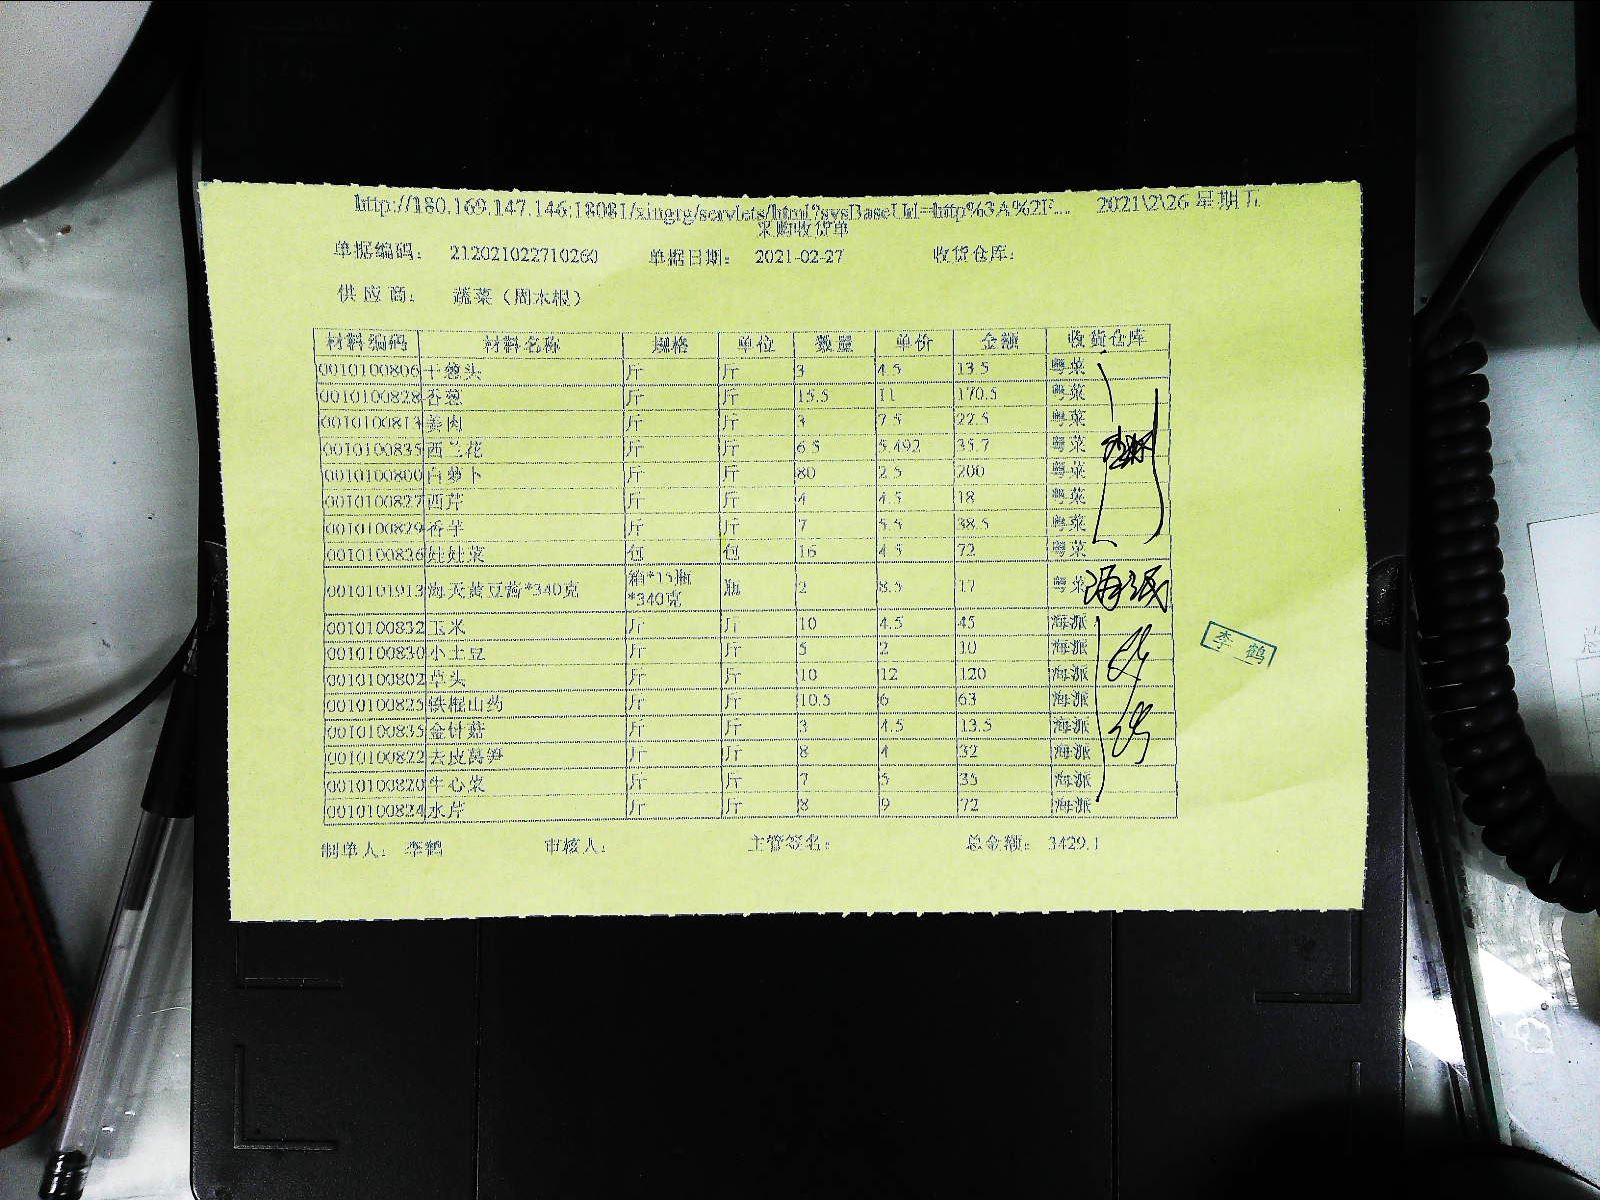 http://180.169.147.146:18081/xingrg/servlets/html?sysBaseUrl=http%3A%2F... 2021\2\26 星期五
采购收货单
单据编码： 212021022710260 单据日期： 2021-02-27 收货仓库：
供 应 商： 蔬菜（周木根）
材料编码 材料名称 规格 单位 数量 单价 金额 收货仓库
0010100806 干葱头 斤 斤 3 4.5 13.5 粤菜
0010100828 香葱 斤 斤 15.5 11 170.5 粤菜
0010100813 姜肉 斤 斤 3 7.5 22.5 粤菜
0010100835 西兰花 斤 斤 6.5 5.492 35.7 粤菜
0010100800 白萝卜 斤 斤 80 2.5 200 粤菜
0010100827 西芹 斤 斤 4 4.5 18 粤菜
0010100829 香芋 斤 斤 7 5.5 38.5 粤菜
0010100826 娃娃菜 包 包 16 4.5 72 粤菜
0010101913 海天黄豆酱*340克 箱*15瓶*340克 瓶 2 8.5 17 粤菜
0010100832 玉米 斤 斤 10 4.5 45 海派
0010100830 小土豆 斤 斤 5 2 10 海派
0010100802 草头 斤 斤 10 12 120 海派
0010100825 铁棍山药 斤 斤 10.5 6 63 海派
0010100835 金针菇 斤 斤 3 4.5 13.5 海派
0010100822 去皮莴笋 斤 斤 8 4 32 海派
0010100820 牛心菜 斤 斤 7 5 35 海派
0010100824 水芹 斤 斤 8 9 72 海派
李 鹤
制单人： 李鹤 审核人： 主管签名： 总金额： 3429.1